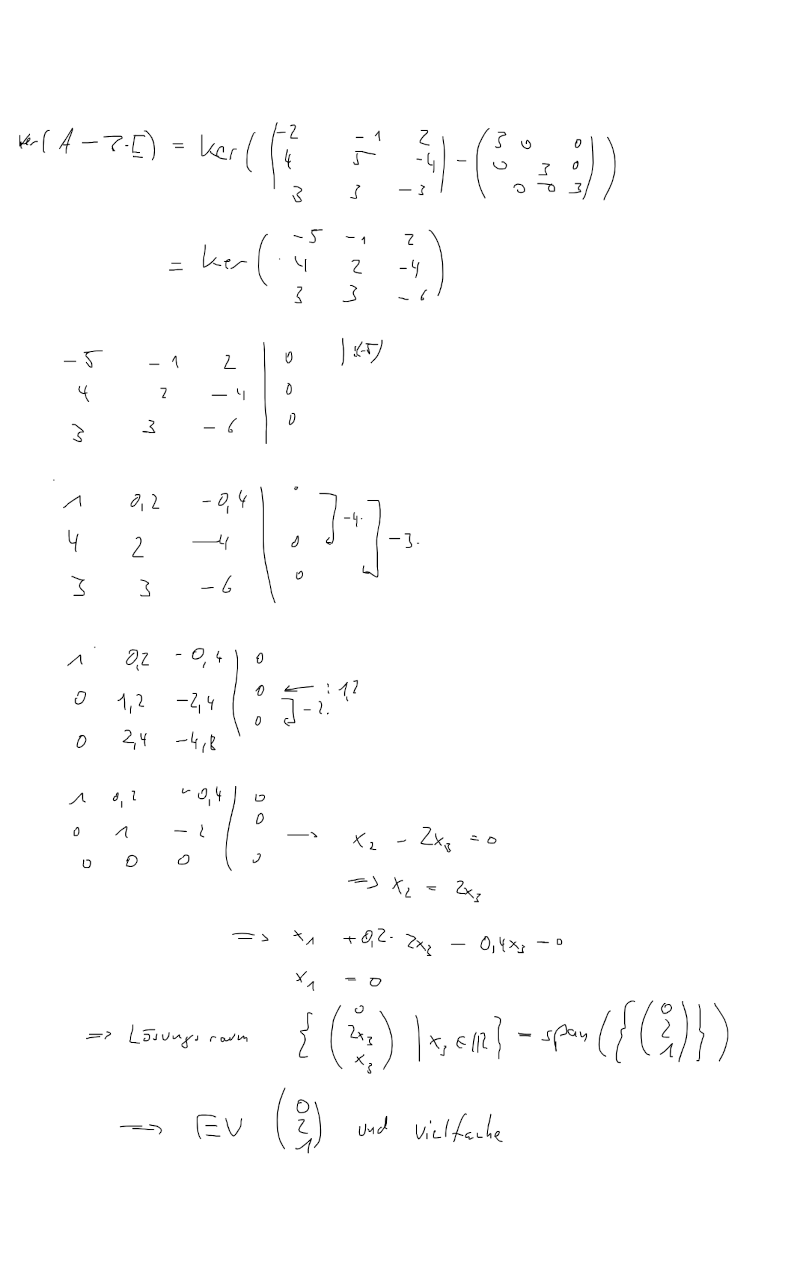 ker(A - 3·E) = ker( ( -2 -1 2 ) - ( 3 0 0 ) )
4 5 -4 0 3 0
3 3 -3 0 0 3
= ker( -5 -1 2 )
4 2 -4
3 3 -6
-5 -1 2 | 0 | :(-5)
4 2 -4 | 0
3 3 -6 | 0
1 0,2 -0,4 | ·
4 2 -4 | 0 ] -4· ] -3·
3 3 -6 | 0
1 0,2 -0,4 | 0
0 1,2 -2,4 | 0 ← : 1,2
0 2,4 -4,8 | 0 ] -2·
1 0,2 -0,4 | 0
0 1 -2 | 0 → x₂ - 2x₃ = 0
0 0 0 | 0
=> x₂ = 2x₃
=> x₁ + 0,2· 2x₃ - 0,4x₃ = 0
x₁ = 0
=> Lösungsraum { ( 0 2x₃ x₃ ) | x₃ ∈ ℝ } = span( { ( 0 2 1 ) } )
=> EV ( 0 2 1 ) und vielfache